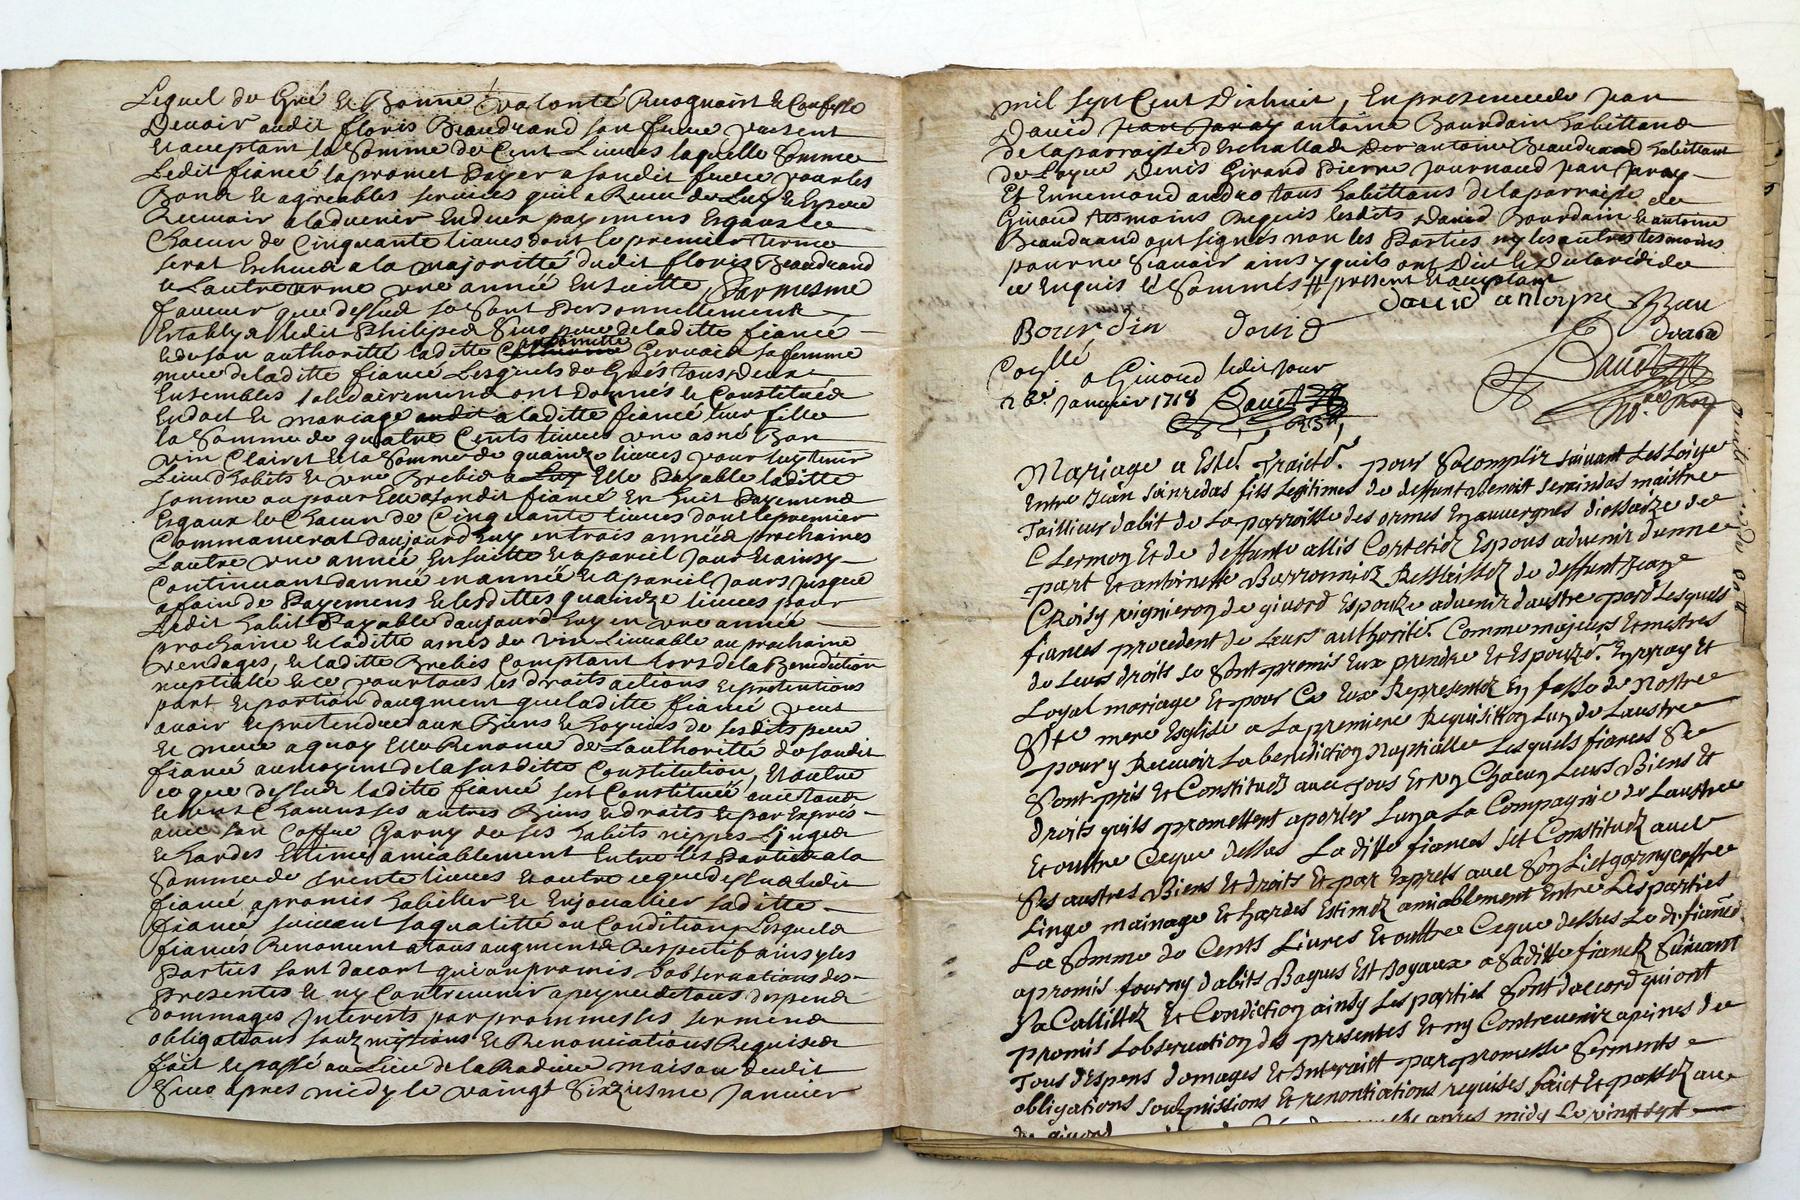 Lequel de Gré et Bonne volonté Recognoist et Confesse
Devoir audit floris Beaudrand son frere present
et acceptant la Somme de Cent Livres laquelle Somme
Ledit fiancé la promet Payer a sondit frere pour les
Bons et agreables services quil a Receu de Luy et Espere
Recevoir a ladvenir En deux payemens Esgaux de
Chacun de Cinquante livres dont le premier terme
serat Escheu a la majoritté dudit floris Beaudrand
et Lautre terme une année Ensuitte, Par mesme
faveur que dessus se Sont Personnellement
Establys ledit Philiped pere de laditte fiancé
et de son authorité laditte anthoinette Gervais sa femme
mere de laditte fiancé Lesquels de Grés tous Deux
Ensembles solidairement ont Donnés et Constitués
En dot et mariage audit a laditte fiancé leur fille
la Somme de quatre Cents livres une asné Bon
vin Clairet et la Somme de quainze livres pour luy tenir
Lieu d'habits et une Brebis a Luy Elle Payable laditte
somme ou pour Elle a sondit fiancé En huit Payemens
Esgaux de Chacun de Cinquante livres dont le premier
Commancerat daujourdhuy en trois années prochaines
Lautre une année Ensuitte et a pareil Jour et ainsy
Continuant dannée en année et a pareil Jours Jusque
a fain de Payemens et lesdittes quainze livres pour
Ledit habit Payable daujourdhuy en une année
prochaine et laditte asnés de vin Livvable au prochaine
vendages, et laditte Brebis Comptant lors de la Benediction
nuptialle et ce pour tous les droits actions et pretentions
part et portion daugment que laditte fiancé peut
avoir et pretendre aux Biens et hoyries de sesdits pere
et mere a quoy Elle Renonce de Lauthoritté de sondit
fiancé au moyent de la susditte Constitution, Et outre
ce que dessus laditte fiancé sest Constitué avec tous
et un Chacuns ses autres Biens et droits et par Expres
avec son Coffre Garny de ses habits nippes Linges
et hardes Estimé amiablement Entre les Parties a la
Somme de trente livres Et outre ce que dessus Ledit
fiancé a promis habiller et Enjouallier saditte
fiancé suivant sa qualitté et Condition, Lesquels
fiancés Renoncent a tous augments Respectif ainsy les
Parties sont dacort qui ont promis Lobservations des
Presentes et ny Contrevenir a peyne de tous despens
Dommages Interests par prommesses serments
obligations souzmissions et Renonciations Requises
fait et passé au Lieu de la maison dudit
apres midy le vaingt Sixziesme Janvier
mil sept Cent Dixhuit, En presence de Jean
David Jean Jaray antoine Bourdain habittans
de la parroisse d'Echallas Sr antoine Beaudrand habittant
de Loyre Denis Girand Pierre Journoud Jean Jaray
Et Ennemond andre tous habittans de la parroisse de
Givord tesmoins Requis lesdits David Bourdain et antoine
Beaudrand ont signés non les Parties ny les autres tesmoins
pour ne scavoir ainsy quils ont Dict et Declaré de
ce Enquis et Sommés # present et acceptant
David antoyne Beau
drand
Bourdin David
Collé
a Givord ledit Jour
26e. Janvier 1718
Mariage a Esté Traicté pour Sacomplir suivant Les Loix
Entre Jean sainredas fils Legitimes de deffunt Benoit serindas maistre
Tailleur dabit de La parroisse des ormes En auvergnes diossaize de
Clermon Et de deffunte allis Espous advenir dunne
part Et antoinette de deffunt Jean
Choisy vigneron de givord Espouze advenir daustre pard Lesquels
fiances procedent de Leurs authorité Comme majeurs Et mestres
de Leurs droits se sont promis Eux prendre Et Espouzé En vray Et
Loyal mariage Et pour Ce Eux Representer En fasse de Nostre
Ste mere Esglise a La premiere Requisition Lun de Laustre
pour y Recevoir La benediction Nuptialle Lesquels fiances Se
Sont pris Et Constitués avec Tous Et un Chacun Leurs Biens Et
droits quils promettent aporter Lung a La Compagnie de Laustre
Et oultre Ceque dessus La ditte fiances set Constitués avec
Ses austres Biens Et droits Et par Exprets avec Son Lict garny coffre
Linge mainage Et hardes Estimez amiablement Entre Les parties
La Somme de Cents Livres Et oultre Ceque dessus Le dit fiancé
a promis fourny dabits Bagues Est Joyaux a Saditte fiances Suivant
Sa Callittez Et Condiction ainsy Les parties Sont daccord qui ont
promis Lobservation des presentes Et ny Contrevenir a peines de
Tous despens domages Et Interaitt par promesse Serments
obligations soulzmissions Et renontiations requises faict Et passez au
de givord apres midy Le vingt sept